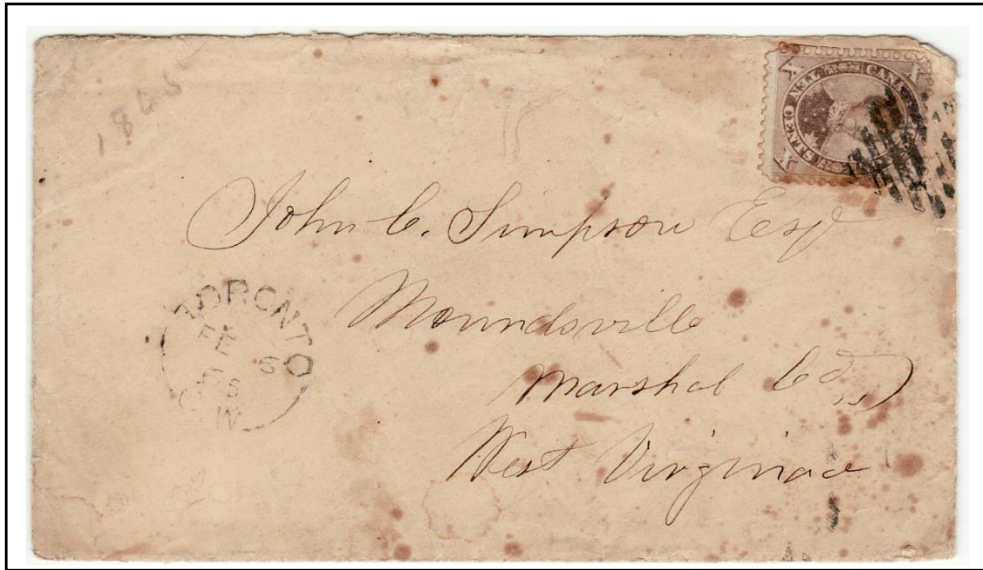 1865
X CANADA X
TEN CENTS
X X
John C. Simpson Esq
Moundsville
Marshal Co,,
West Virginia
TORONTO
FE 6
65
C.W